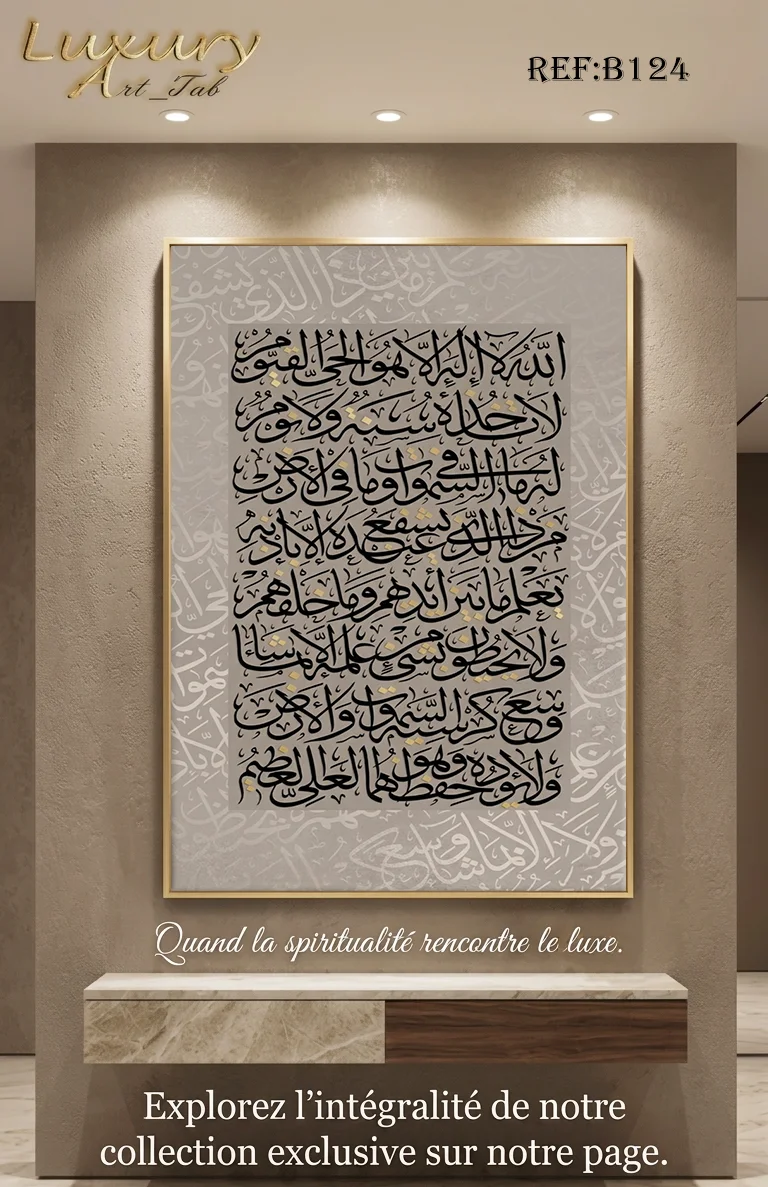 Luxury
Art_Tab
REF:B124
الله لا إله إلا هو الحي القيوم
لا تأخذه سنة ولا نوم
له ما في السموات وما في الأرض
من ذا الذي يشفع عنده إلا بإذنه
يعلم ما بين أيديهم وما خلفهم
ولا يحيطون بشيء من علمه إلا بما شاء
وسع كرسيه السموات والأرض
ولا يؤده حفظهما وهو العلي العظيم
Quand la spiritualité rencontre le luxe.
Explorez l’intégralité de notre
collection exclusive sur notre page.